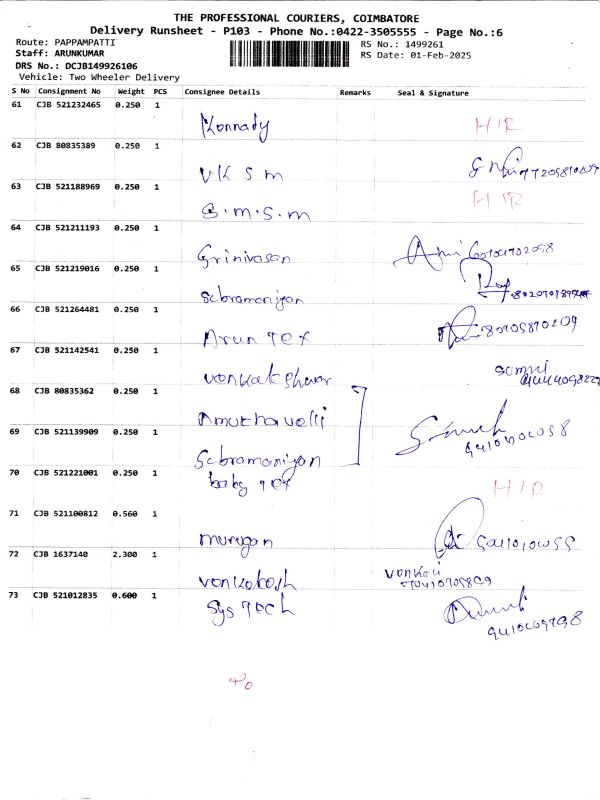 THE PROFESSIONAL COURIERS, COIMBATORE
Delivery Runsheet - P103 - Phone No.:0422-3505555 - Page No.:6
Route: PAPPAMPATTI
RS No.: 1499261
Staff: ARUNKUMAR
RS Date: 01-Feb-2025
DRS No.: DCJB149926106
Vehicle: Two Wheeler Delivery
S No Consignment No Weight PCS Consignee Details Remarks Seal & Signature
61 CJB 521232465 0.250 1
Konnady H/R
62 CJB 80835389 0.250 1
VK S m
63 CJB 521188969 0.250 1
H/R
S.m.S.m
64 CJB 521211193 0.250 1
Srinivasan
65 CJB 521219016 0.250 1
Sebramaniyan
66 CJB 521264481 0.250 1
Arun Tex
67 CJB 521142541 0.250 1
Vonkakshwar
68 CJB 80835362 0.250 1
Amuthavalli
69 CJB 521139909 0.250 1
Sebramaniyan
70 CJB 521221001 0.250 1
baby Tex H/R
71 CJB 521100812 0.560 1
murugan
72 CJB 1637140 2.300 1
Vonkobosh
73 CJB 521012835 0.600 1
Sys Tech